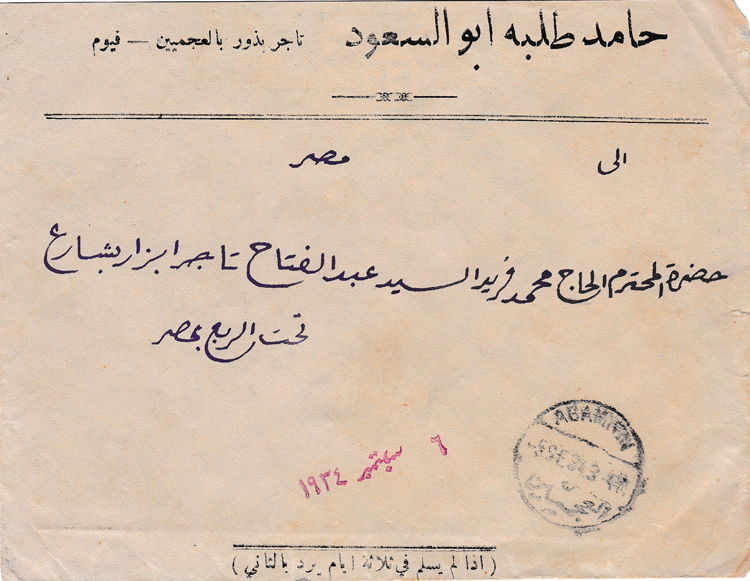 حامد طلبه ابو السعود تاجر بذور بالعجميين — فيوم
الى مصر
حضرة المحترم الحاج محمد فريد السيد عبد الفتاح تاجر ابزار بشارع
تحت الربع بمصر
٦ سبتمبر ١٩٣٤
AGAMIYIN
العجميين
( اذا لم يسلم في ثلاثة ايام يرد بالثاني )